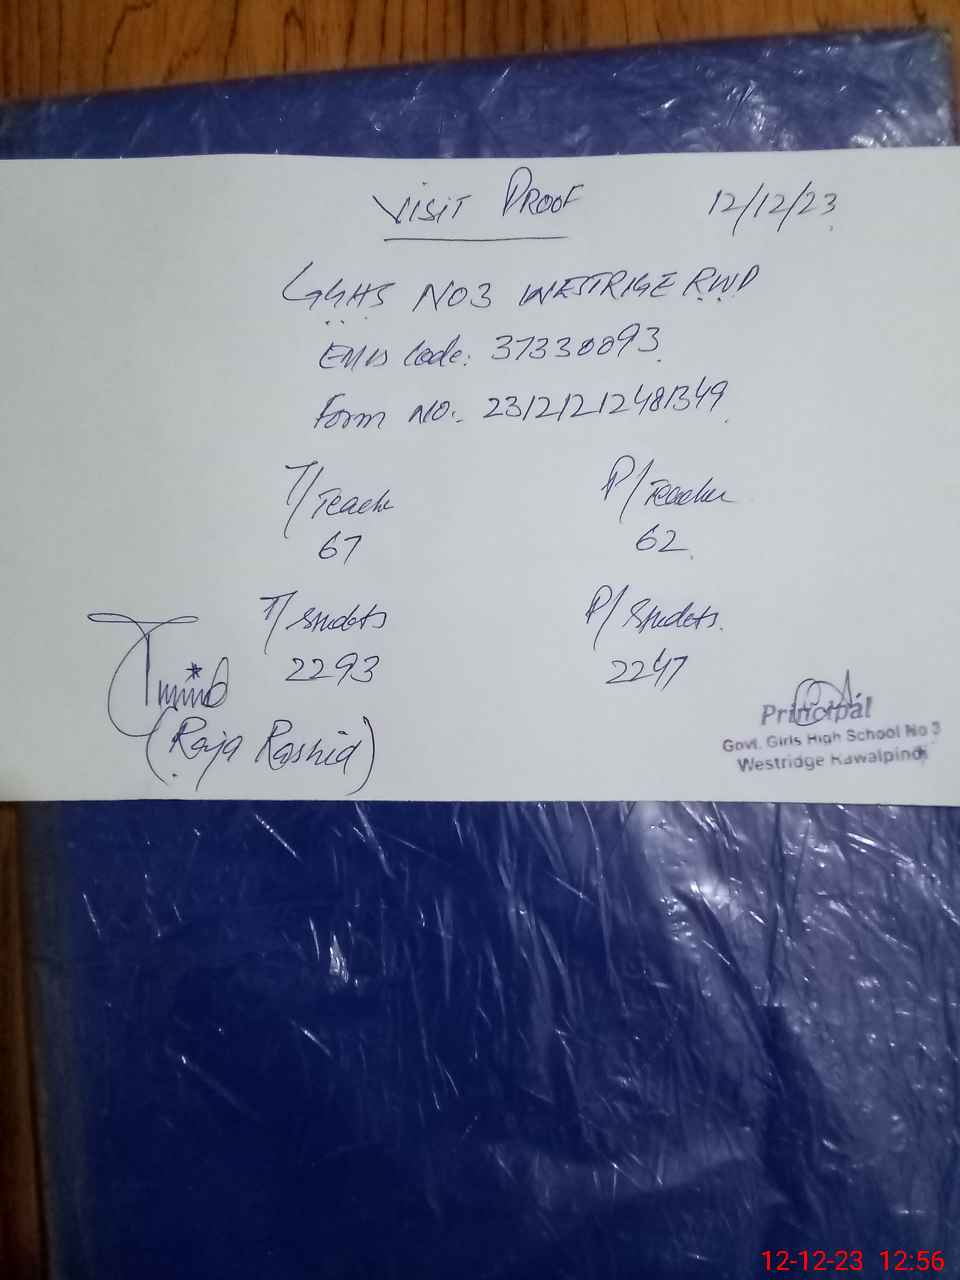 VISIT PROOF 12/12/23
GGHS NO3 WESTRIGE RWP
EMIS Code: 37330093
Form NO:- 23121212481349
T/Teache P/Teacher
67 62
T/Studets P/Studets.
2293 2247
(Raja Rashid)
Principal
Govt. Girls High School No 3
Westridge Rawalpindi
12-12-23 12:56